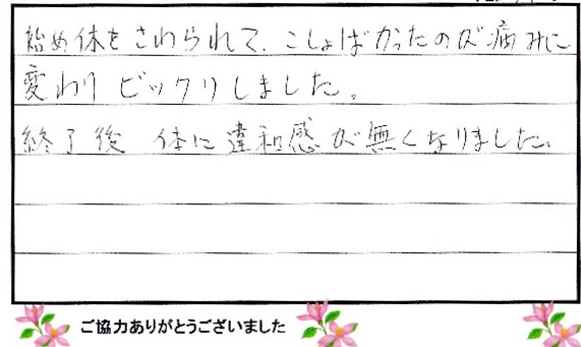 始め体をさわられて、こしょばかったのが痛みに
変わりビックリしました。
終了後 体に違和感が無くなりました。
ご協力ありがとうございました